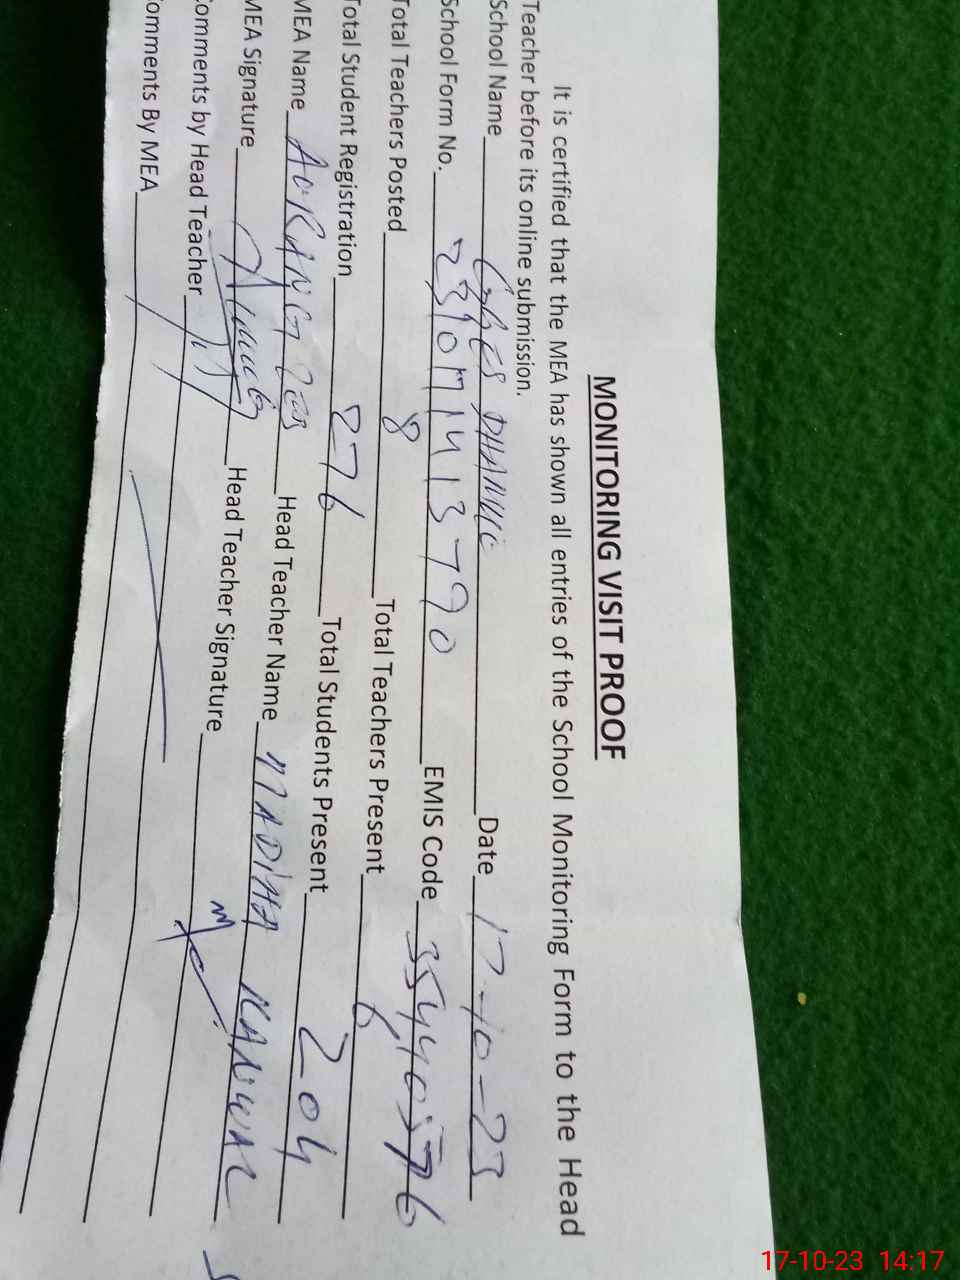 MONITORING VISIT PROOF
It is certified that the MEA has shown all entries of the School Monitoring Form to the Head
Teacher before its online submission.
School Name GGES Date 17-10-23
School Form No. EMIS Code 35440576
Total Teachers Posted 8 Total Teachers Present 6
Total Student Registration 276 Total Students Present 204
MEA Name AURANGZEB Head Teacher Name MADIHA KANWAL
MEA Signature Head Teacher Signature
omments by Head Teacher
omments By MEA
17-10-23 14:17